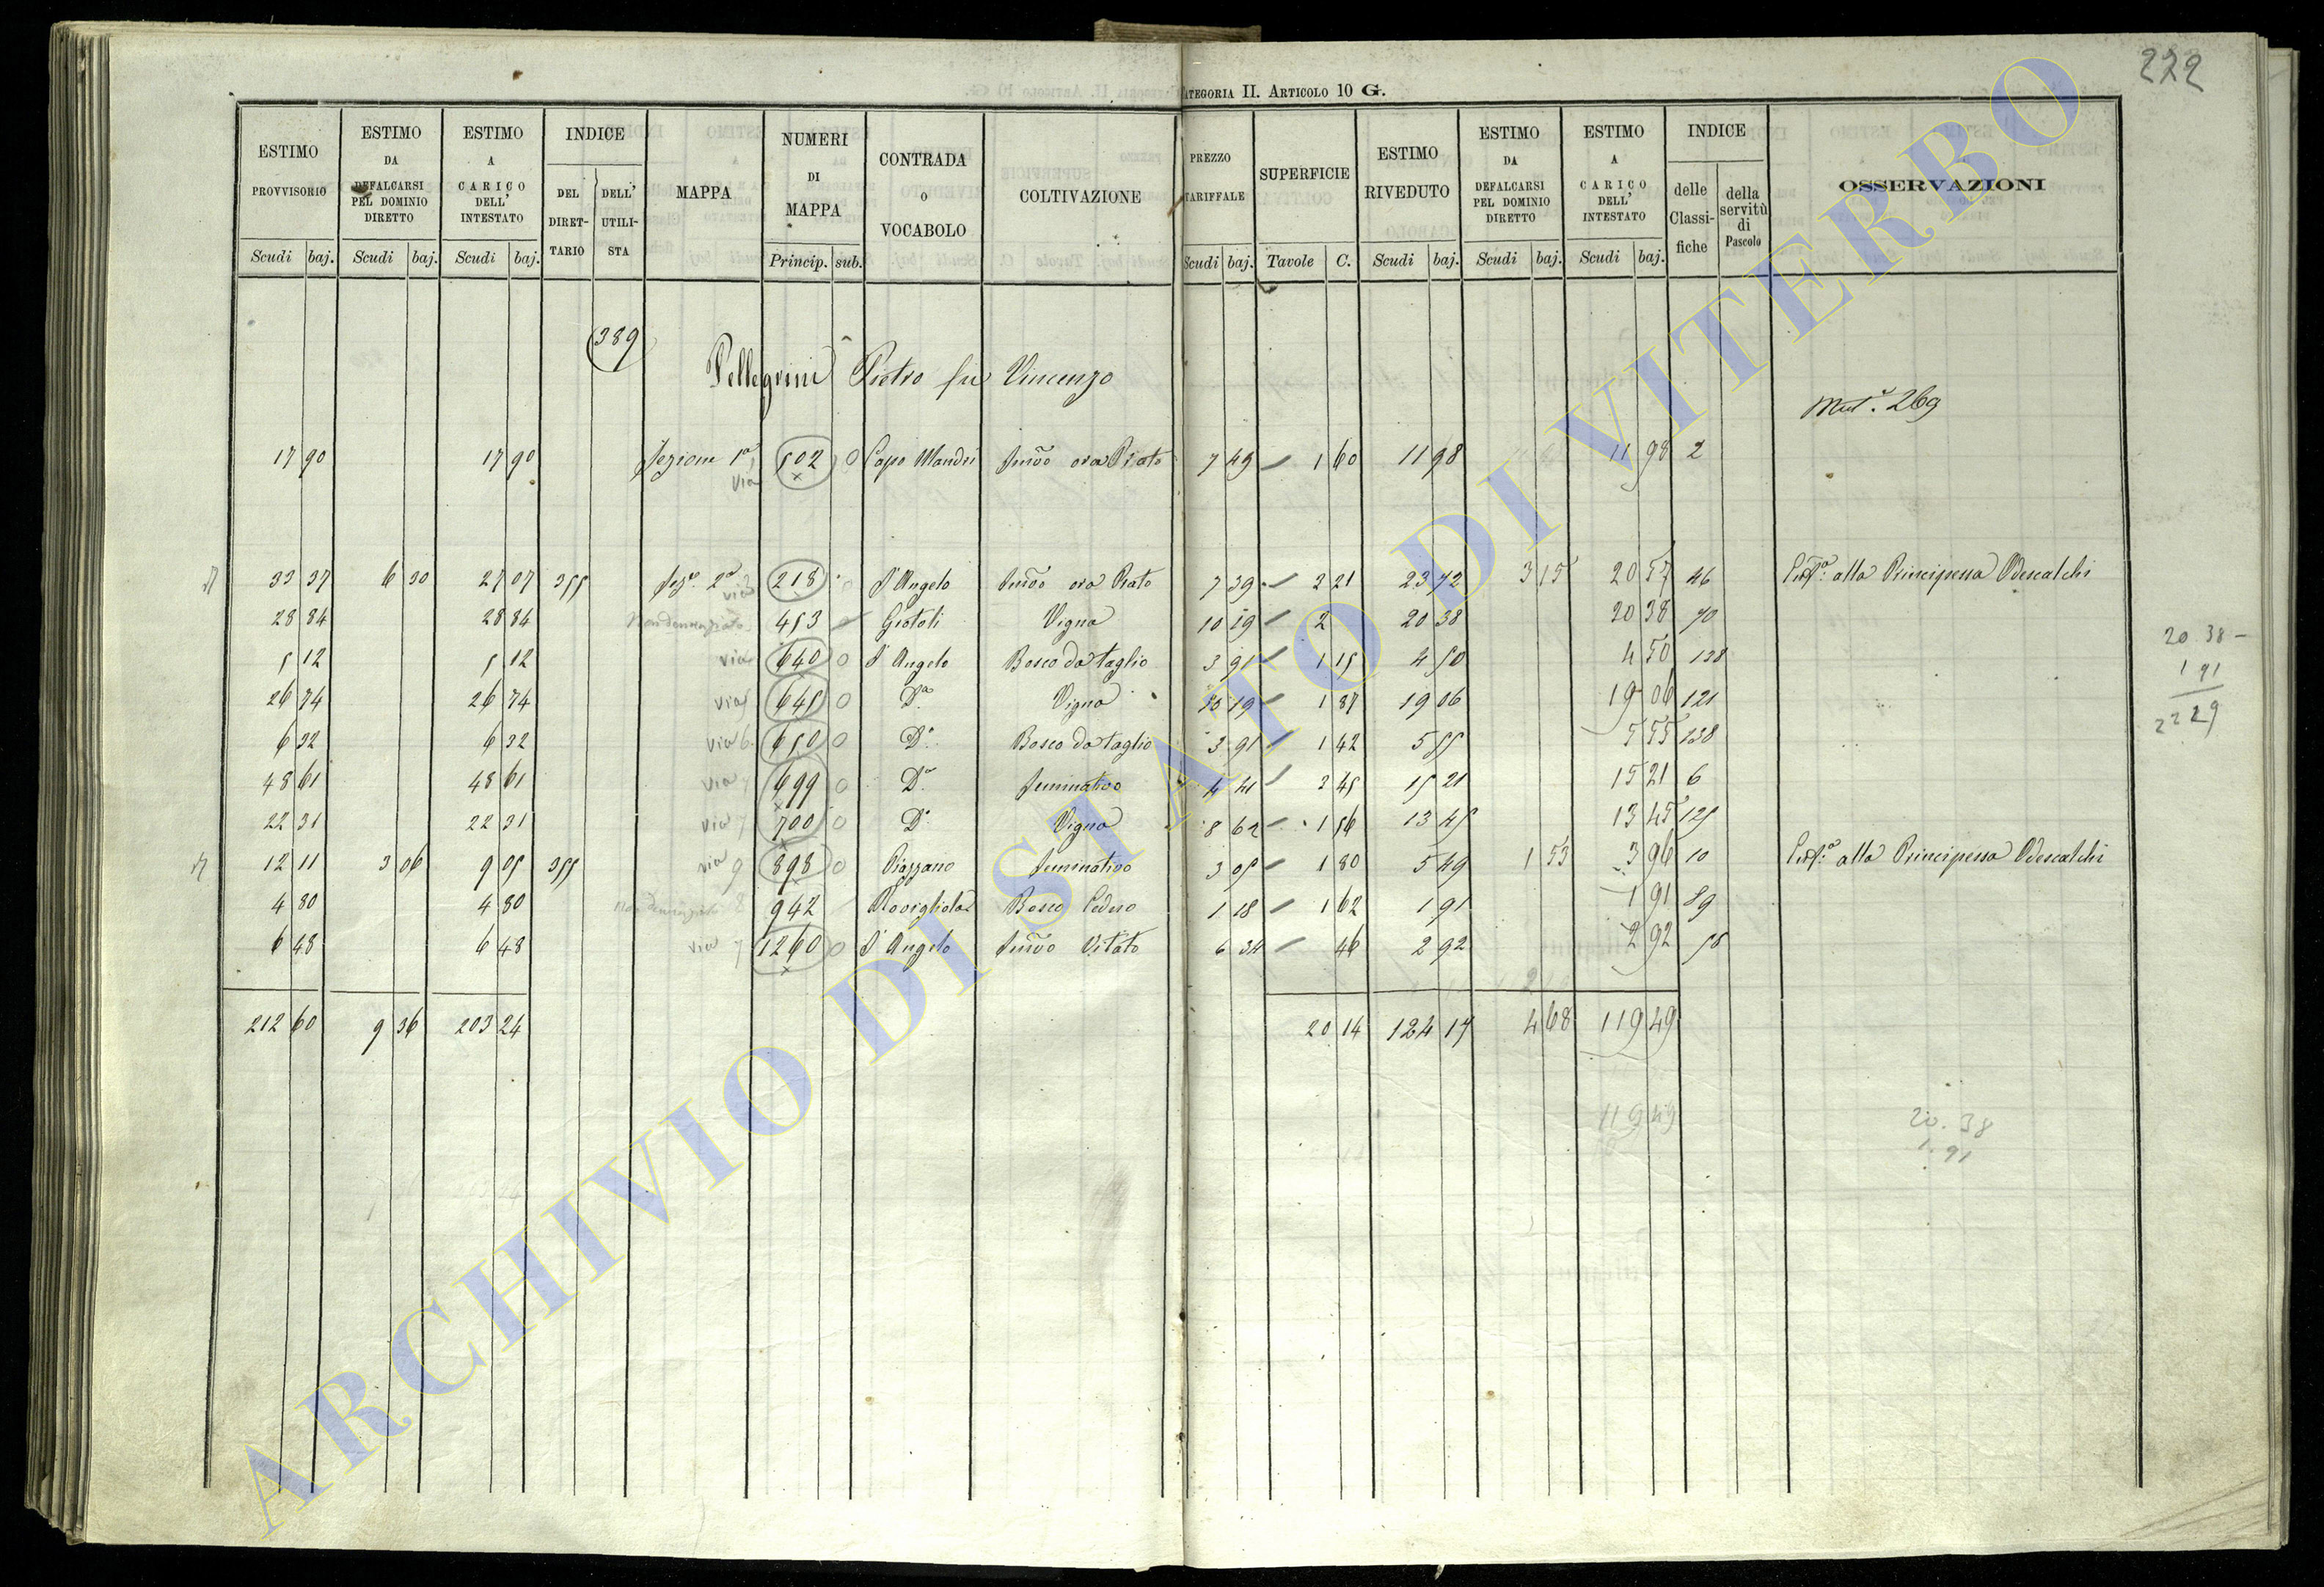 222
CATEGORIA II. ARTICOLO 10 G.
ESTIMO PROVVISORIO Scudi baj. ESTIMO DA DEFALCARSI PEL DOMINIO DIRETTO Scudi baj. ESTIMO A CARICO DELL' INTESTATO Scudi baj. INDICE DEL DIRET-TARIO DELL' UTILI-STA MAPPA NUMERI DI MAPPA Princip. sub. CONTRADA O VOCABOLO COLTIVAZIONE PREZZO TARIFFALE Scudi baj. SUPERFICIE Tavole C. ESTIMO RIVEDUTO Scudi baj. ESTIMO DA DEFALCARSI PEL DOMINIO DIRETTO Scudi baj. ESTIMO A CARICO DELL' INTESTATO Scudi baj. INDICE delle Classi-fiche della servitù di Pascolo OSSERVAZIONI
389
Pellegrini Pietro fu Vincenzo
Mut. 269
17 90 17 90 Sezione 1a 502 0 Capo Mandri ora Prato 7 49 1 60 11 98 11 98 2
via
33 37 6 30 27 07 355 Sez. 2a 218 S Angelo ora Prato 7 39 3 21 23 72 3 15 20 57 46 alla Principessa Odescalchi
via
28 84 28 84 Non denunziato 453 Giotoli Vigna 10 19 2 20 38 20 38 70
5 12 5 12 via 640 0 S Angelo Bosco da taglio 3 91 1 15 4 50 4 50 138
26 74 26 74 via 645 0 Do Vigna 10 19 1 87 19 06 19 06 121
6 32 6 32 via 6 650 0 Do Bosco da taglio 3 91 1 42 5 55 5 55 138
48 61 48 61 via 7 699 0 Do Seminativo 4 41 3 45 15 21 15 21 6
22 31 22 31 via 7 700 0 Do Vigna 8 62 1 56 13 45 13 45 125
12 11 3 06 9 05 355 via 9 898 0 Piazzano Seminativo 3 05 1 80 5 49 1 53 3 96 10 alla Principessa Odescalchi
4 80 4 80 942 Rovigliola Bosco Ceduo 1 18 1 62 1 91 1 91 89
6 48 6 48 via 7 1260 0 S Angelo Vitato 6 34 46 2 92 2 92 58
212 60 9 36 203 24 20 14 124 17 4 68 119 49
20 38
1 91
22 29
119 49
20. 38
1. 91
ARCHIVIO DI STATO DI VITERBO